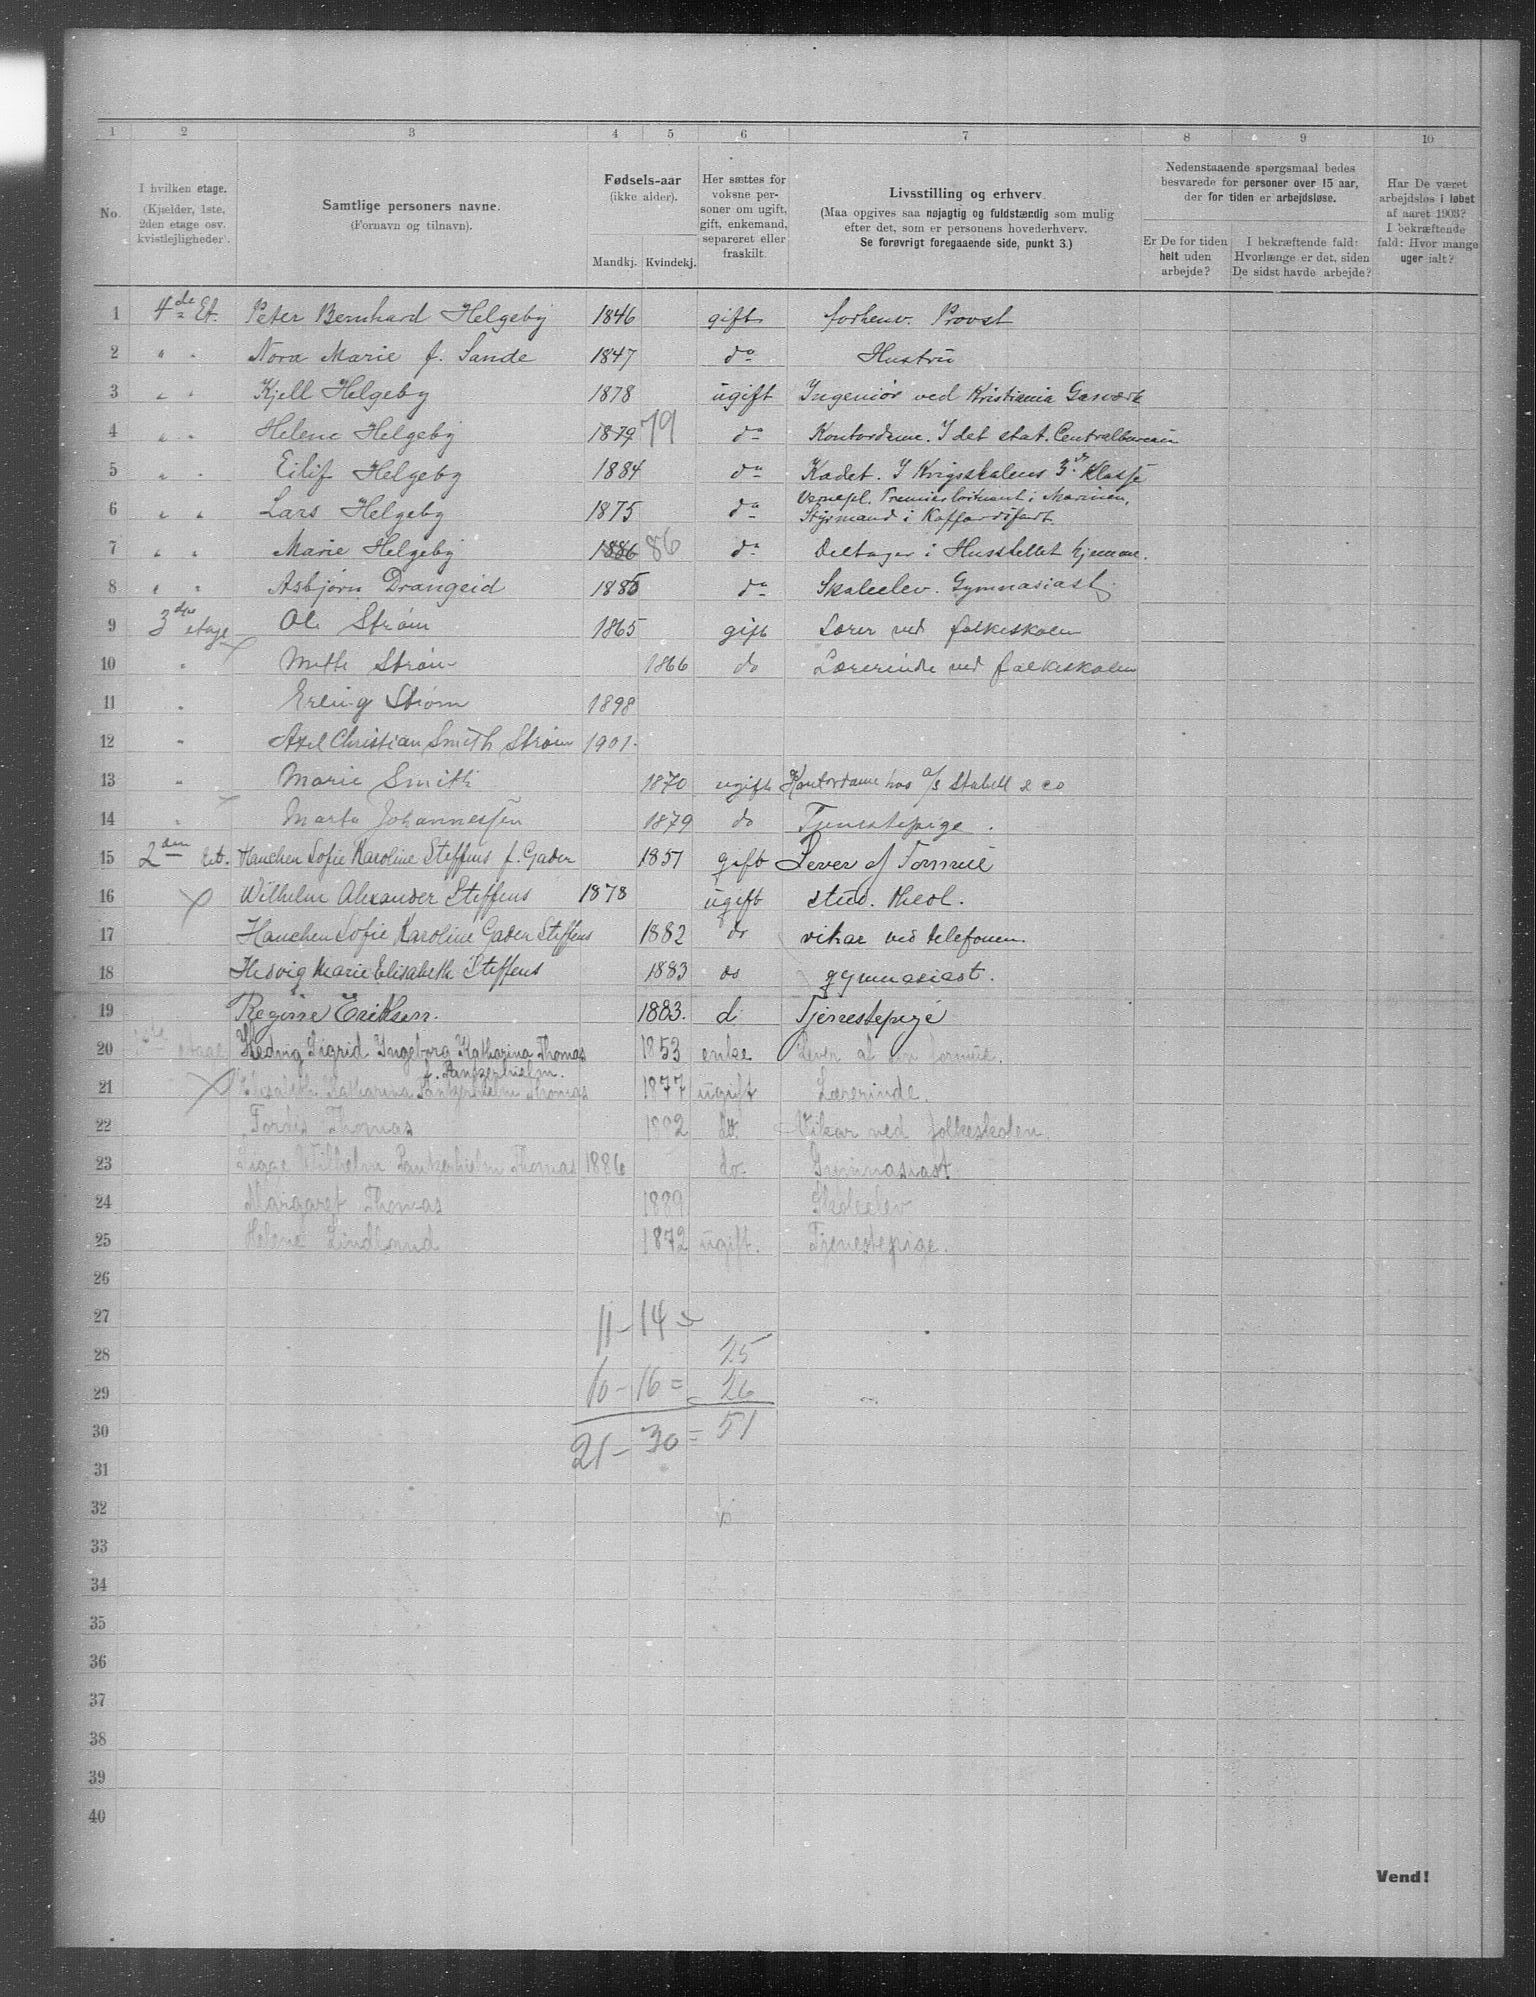 1 2 3 4 5 6 7 8 9 10
No.
I hvilken etage. (Kjælder, 1ste, 2den etage osv. kvistlejligheder).
Samtlige personers navne. (Fornavn og tilnavn).
Fødsels-aar (ikke alder). Mandkj. Kvindekj.
Her sættes for voksne personer om ugift, gift, enkemand, separeret eller fraskilt.
Livsstilling og erhverv. (Maa opgives saa nøjagtig og fuldstændig som mulig efter det, som er personens hovederhverv. Se forøvrigt foregaaende side, punkt 3.)
Nedenstaaende spørgsmaal bedes besvarede for personer over 15 aar, der for tiden er arbejdsløse.
Er De for tiden helt uden arbejde?
I bekræftende fald: Hvorlænge er det, siden De sidst havde arbejde?
Har De været arbejdsløs i løbet af aaret 1903? I bekræftende fald: Hvor mange uger ialt?
1 4de Et. Peter Bernhard Helgeby 1846 gift forhenv. Provst
2 " " Nora Marie f. Sande 1847 do Hustru
3 " " Kjell Helgeby 1878 ugift Ingeniør ved Kristiania Gasværk
4 " " Helene Helgeby 1879 79 do Kontordame. I det stat. Centralbureau
5 " " Eilif Helgeby 1884 do Kadet. I Krigsskolens 3die Klasse
6 " " Lars Helgeby 1875 do Vernepl. Premierløitnant i Marinen, Styrmand i Koffardifart.
7 " " Marie Helgeby 1886 86 do Deltager i Husstellet hjemme.
8 " " Asbjørn Drangeid 1885 do Skoleelev. Gymnasiast.
9 3die etage Ole Strøm 1865 gift Lærer ved folkeskolen
10 " Mette Strøm 1866 do Lærerinde ved folkeskolen
11 " Erling Strøm 1898
12 " Axel Christian Smith Strøm 1901.
13 " Marie Smith 1870 ugift Kontordame hos a/s Stabell & Co
14 " Marta Johannessen 1879 do Tjenestepige.
15 2den Et. Hanchen Sofie Karoline Steffens f. Gader 1851 gift Lever af Formue
16 Wilhelm Alexander Steffens 1878 ugift stud. theol.
17 Hanchen Sofie Karoline Gader Steffens 1882 do vikar ved telefonen.
18 Hedvig Marie Elisabeth Steffens 1883 do gymnasiast.
19 Regine Eriksen. 1883. d Tjenestepige
20 1ste etage Hedvig Sigrid Ingeborg Katharina Thomas 1853 enke Lever af sin formue.
f. Pankerhielm.
21 Elisabeth Katharina Pankerhielm Thomas 1877 ugift Lærerinde.
22 Tordis Thomas 1882 do. Vikar ved folkeskolen.
23 Sigge Wilhelm Pankerhielm Thomas 1886 do. Gymnasiast.
24 Margaret Thomas 1889 Skoleelev
25 Helene Lindland 1872 ugift. Tjenestepige.
26
27 11 - 14 =
28 25
29 10 - 16 = 26
30 21 - 30 = 51
31
32
33
34
35
36
37
38
39
40
Vend!